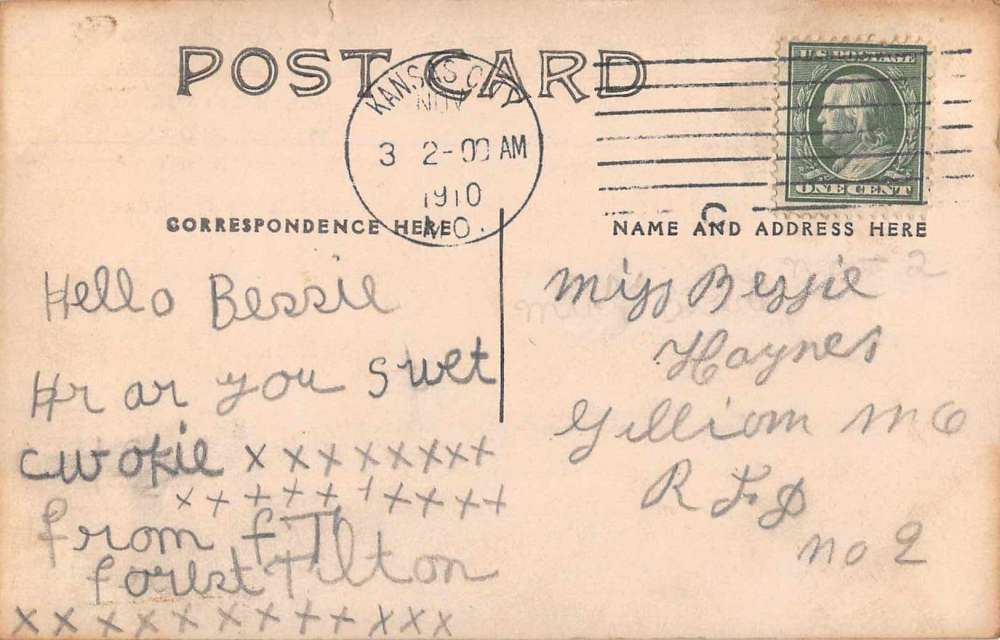 POST CARD
KANSAS CITY
NOV
3 2-00 AM
1910
MO.
U.S. POSTAGE
ONE CENT
CORRESPONDENCE HERE
NAME AND ADDRESS HERE
Hello Bessie
Hr ar you Swet
cwokie x x x x x x x x
x x x x x x x x x x
from F T
forest Tilton
x x x x x x x x x x x x
Miss Bessie
Haynes
Gilliom Mo
R F D
no 2